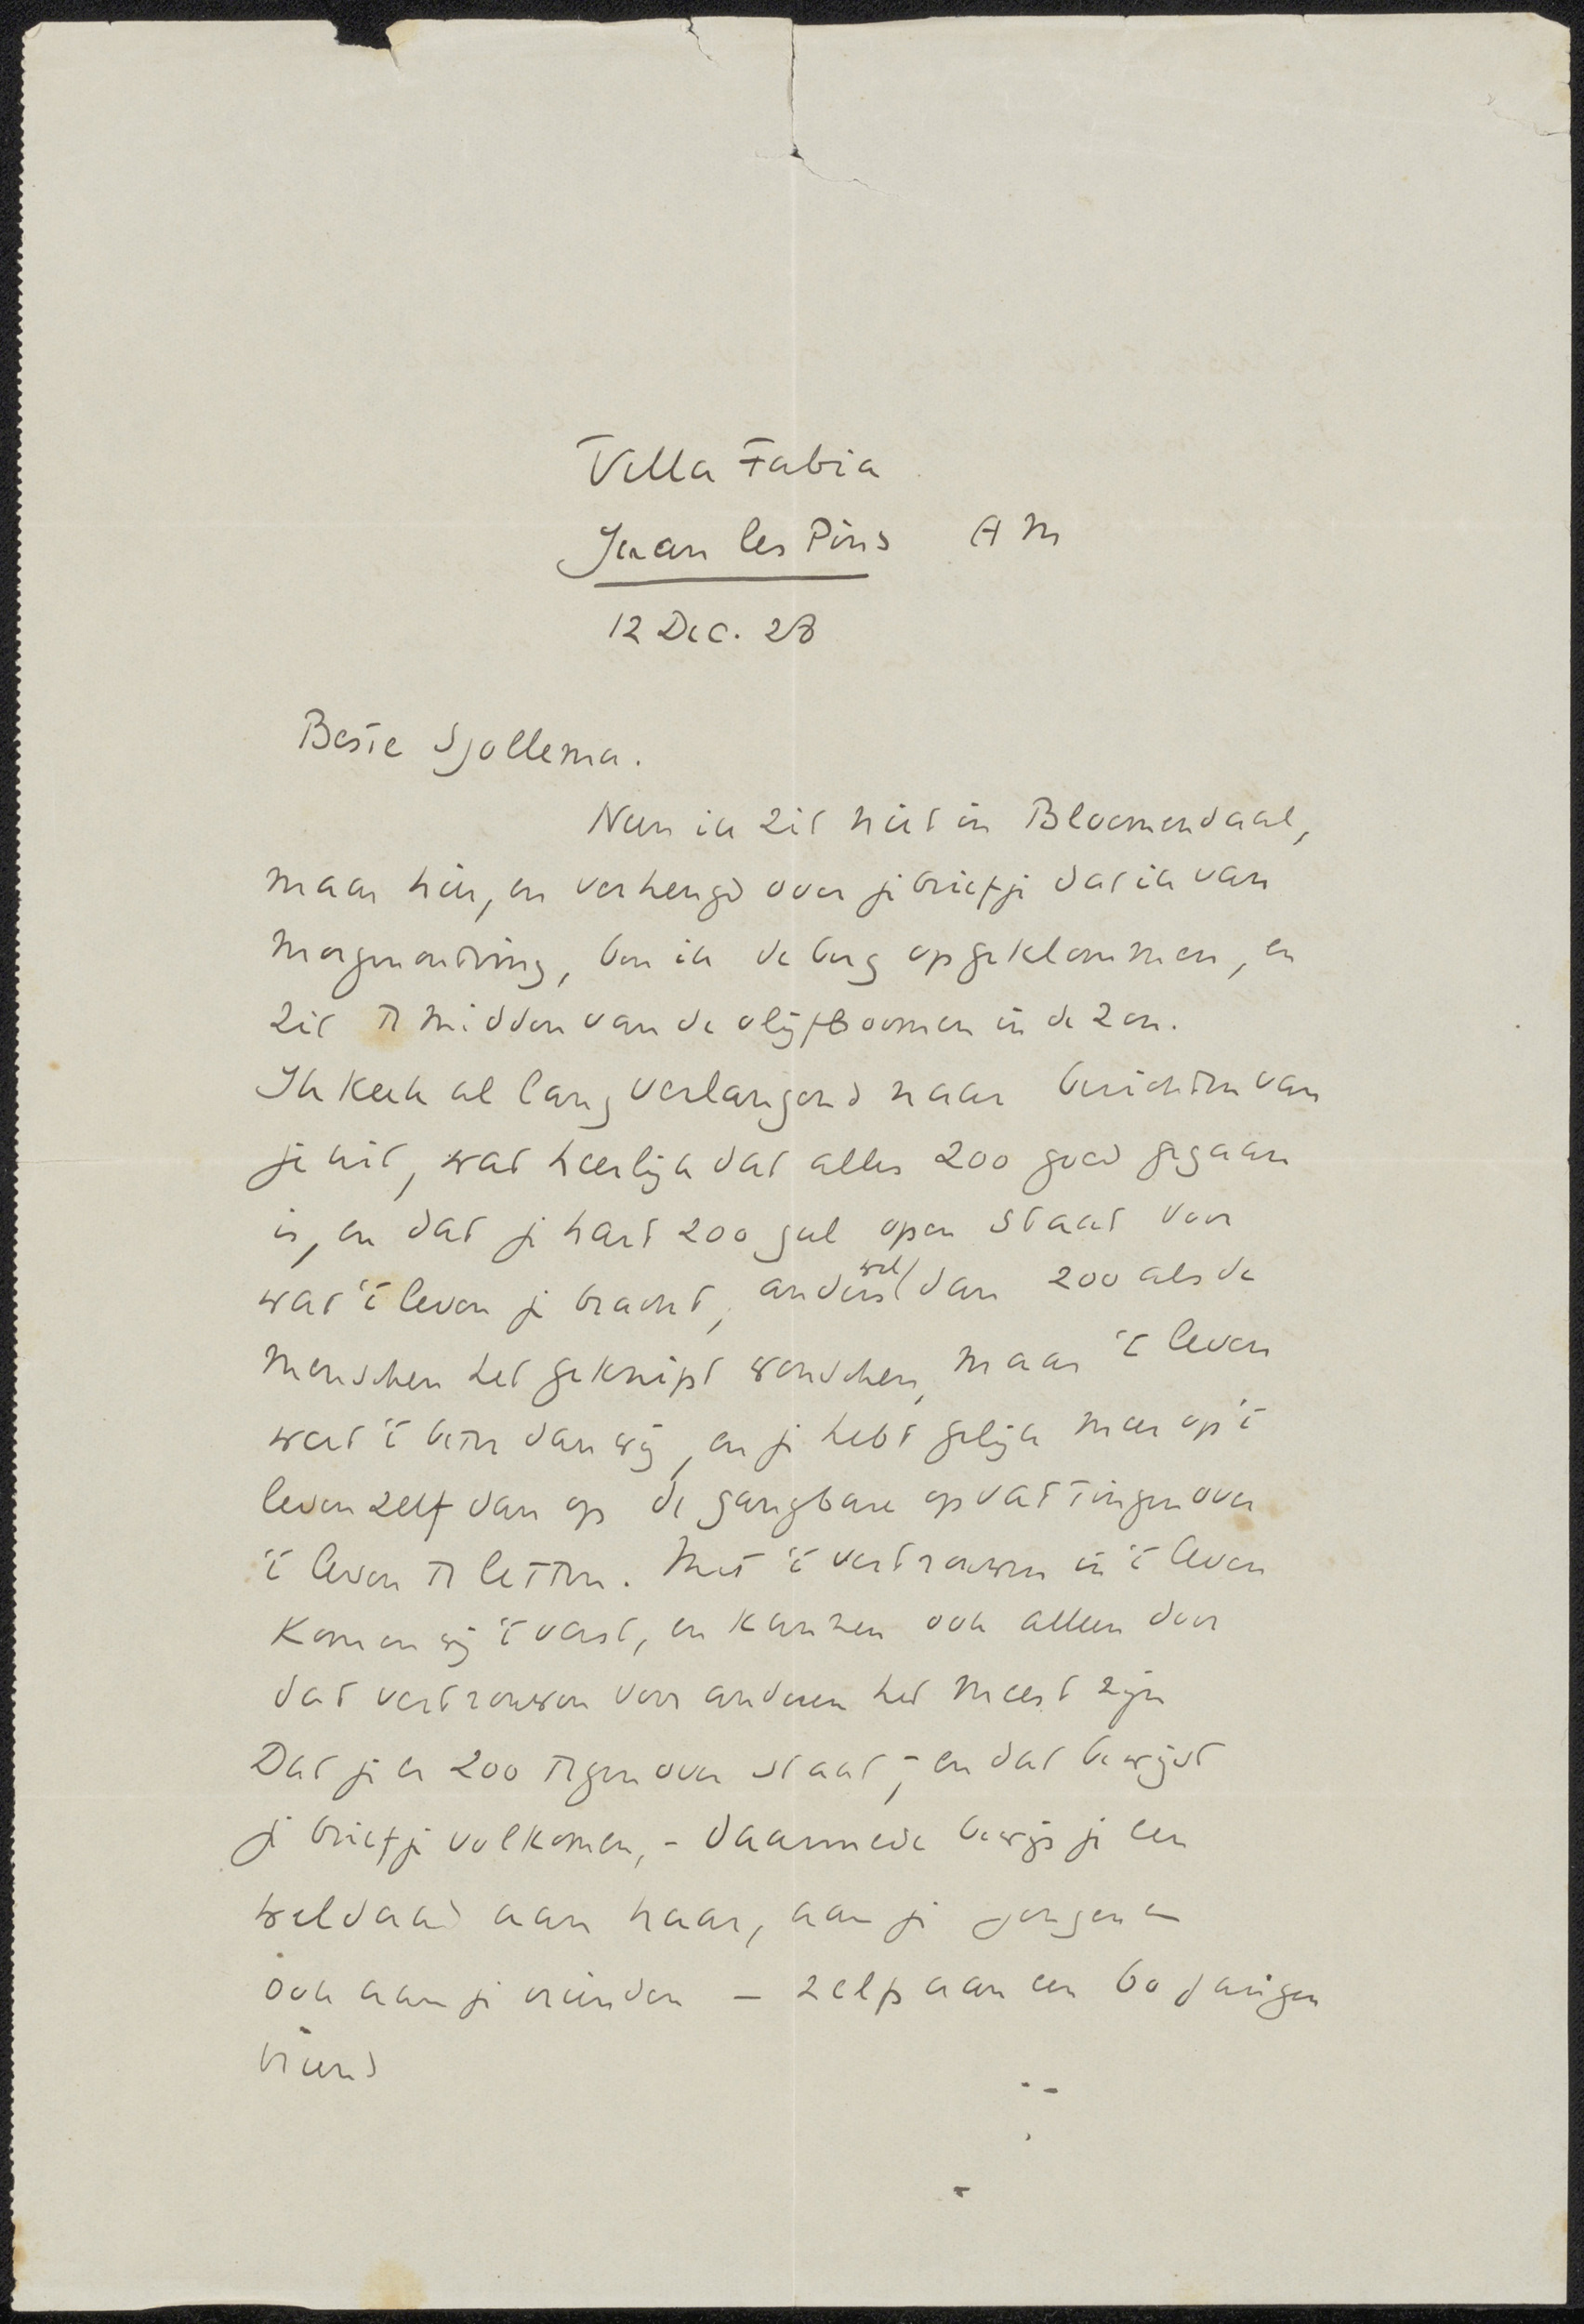 Villa Fabia
Juan les Pins A M
12 Dec. 28
Beste Sjollema.
Neen ik zit niet in Bloemendaal,
maar hier, en verheugd over je briefje dat ik van
morgen ontving, ben ik de berg opgeklommen, en
zit te midden van de olijfboomen in de zon.
Ik keek al lang verlangend naar berichten van
je uit, wat heerlijk dat alles zoo goed gegaan
is, en dat je hart zoo gul open staat voor
wat 't leven je bracht, anders wel dan zoo als de
menschen het geknipt wenschen, maar 't leven
weet 't beter dan wij, en je hebt gelijk meer op 't
leven zelf dan op de gangbare opvattingen over
't leven te letten. Met 't vertrouwen in 't leven
komen wij 't verst, en kunnen ook alleen door
dat vertrouwen voor anderen het meest zijn
Dat je er zoo tegenover staat, - en dat bewijst
je briefje volkomen, - daarmede bewijs je een
weldaad aan haar, aan je jongen en
ook aan je vrienden – zelfs aan een 60 jarigen
vriend